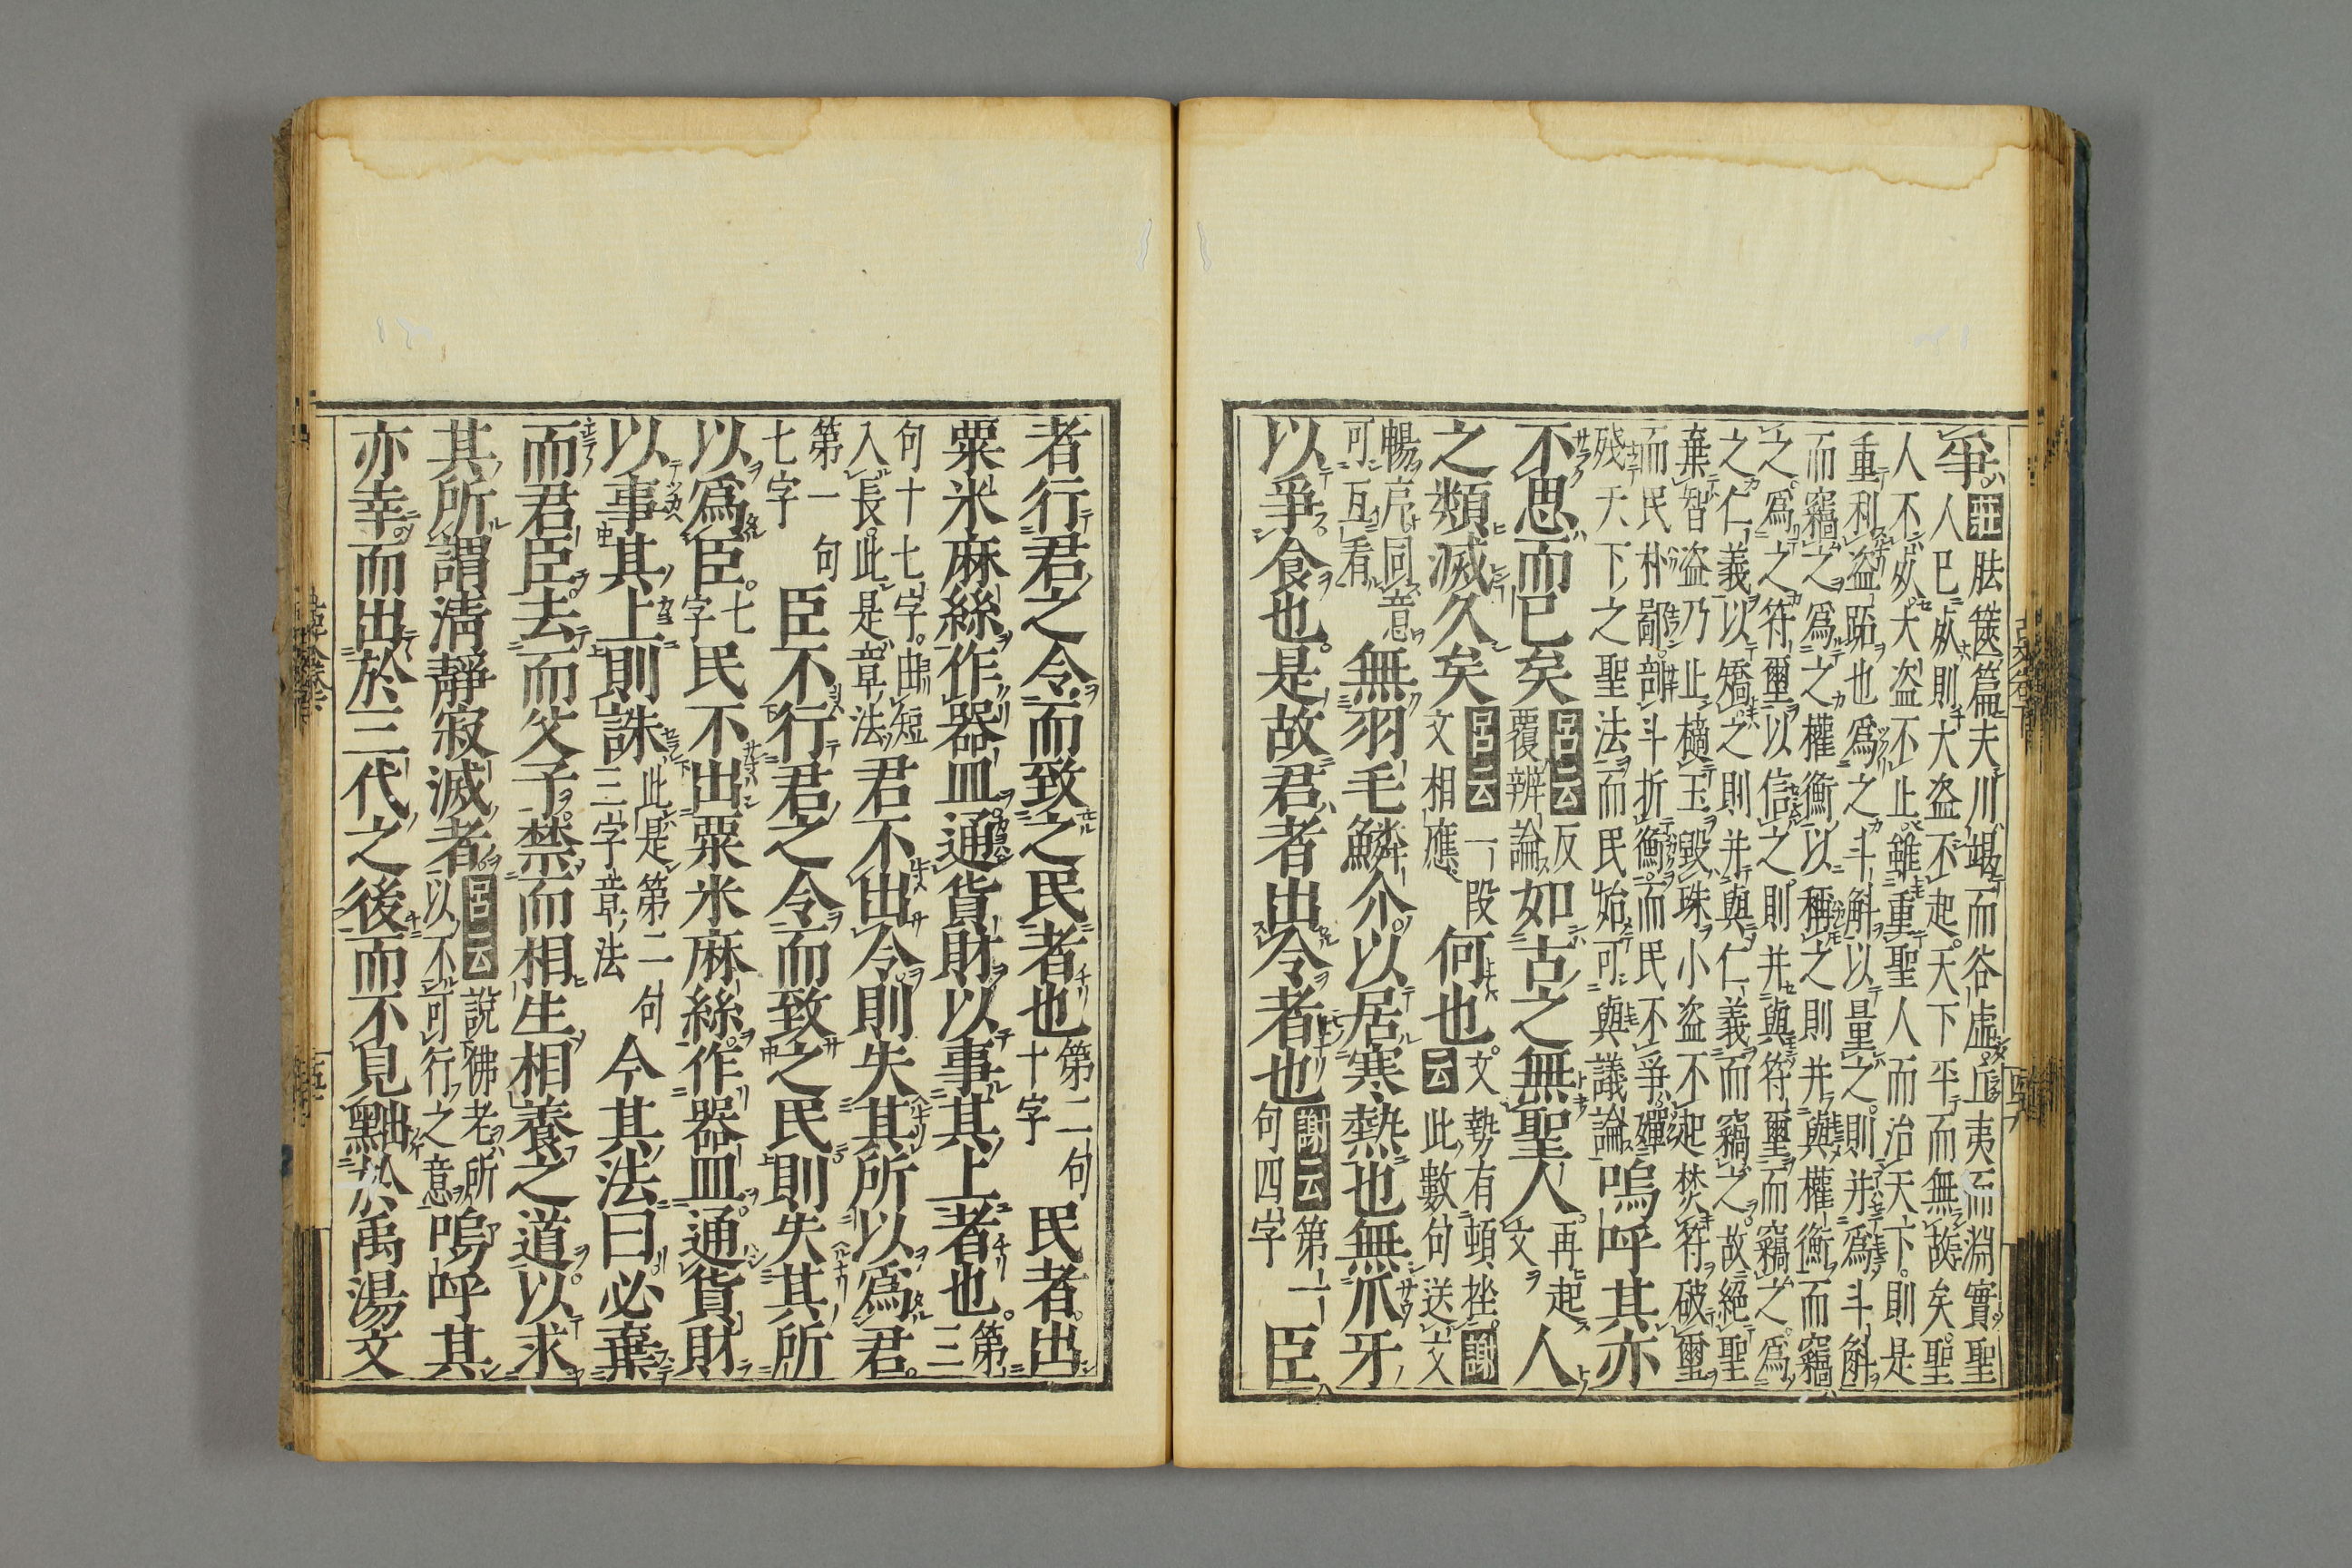 爭莊胠篋篇夫川竭而谷虛丘夷而淵實聖
人已死則大盗不起天下平而無故矣聖
人不死大盗不止雖重聖人而治天下則是
重利盗跖也爲之斗斛以量之則并爲斗斛
而竊之爲之權衡以稱之則并與權衡而竊
之爲之符璽以信之則并與符璽而竊之爲
之仁義以矯之則并與仁義而竊之故絶聖
棄智盗乃止擿玉毀珠小盗不起焚符破璽
而民朴鄙剖斗折衡而民不爭殫
殘天下之聖法而民始可與議論嗚呼其亦
不思而已矣呂云反覆辨論如古之無聖人再起文人
之類滅久矣呂云一段文相應何也文勢有頓挫謝云此數句送文
暢亮同意可互看無羽毛鱗介以居寒熱也無爪牙
以爭食也是故君者出令者也謝云第一句四字臣
者行君之令而致之民者也第二句十字民者出
粟米麻絲作器皿通貨財以事其上者也第三
句十七字由短入長此是章法君不出令則失其所以爲君
第一句七字臣不行君之令而致之民則失其所
以爲臣七字民不出粟米麻絲作器皿通貨財
以事其上則誅此是第二句三字章法今其法曰必棄
而君臣去而父子禁而相生相養之道以求
其所謂淸靜寂滅者呂云說佛老所以不可行之意嗚呼其
亦幸而出於三代之後而不見黜於禹湯文